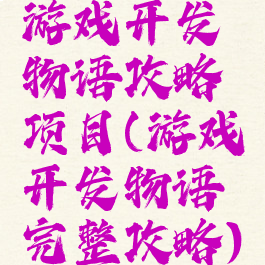 游戏开发
物语攻略
项目(游戏
开发物语
完整攻略)